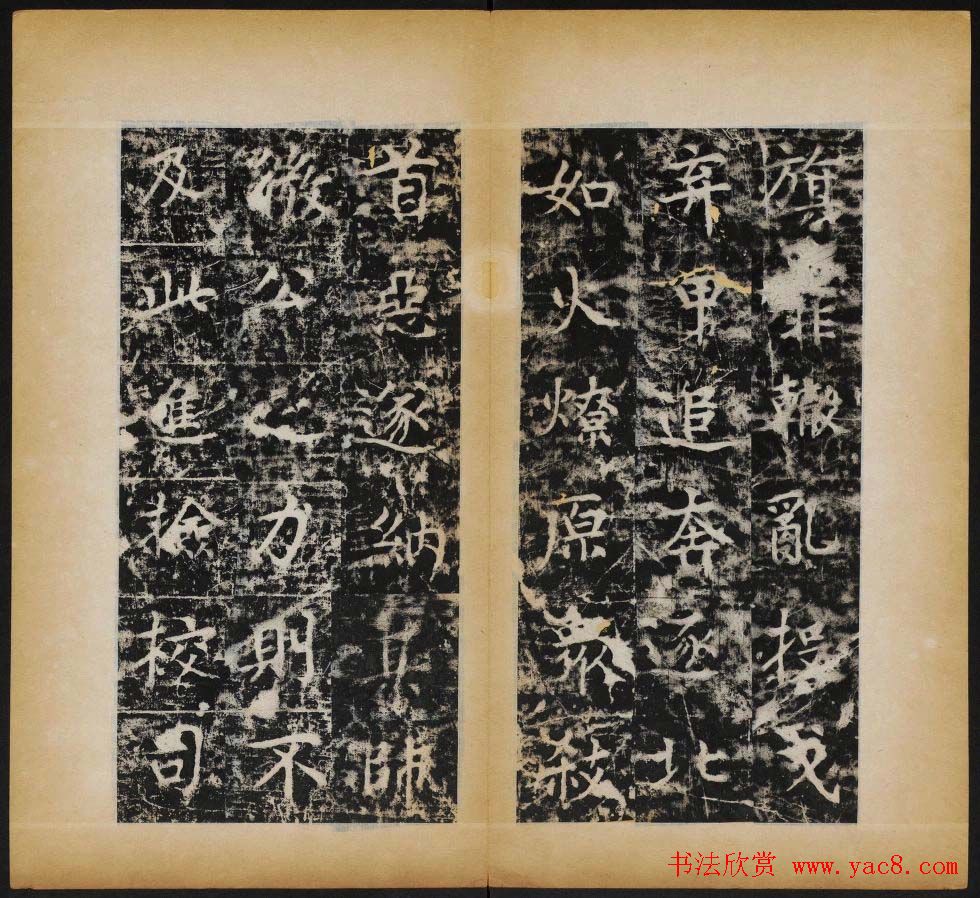 旗靡轍亂投戈
弃軍追奔逐北
如火燎原衆殺
首惡遂納京師
微公之力則不
及此進捡校司
书法欣赏 www.yac8.com